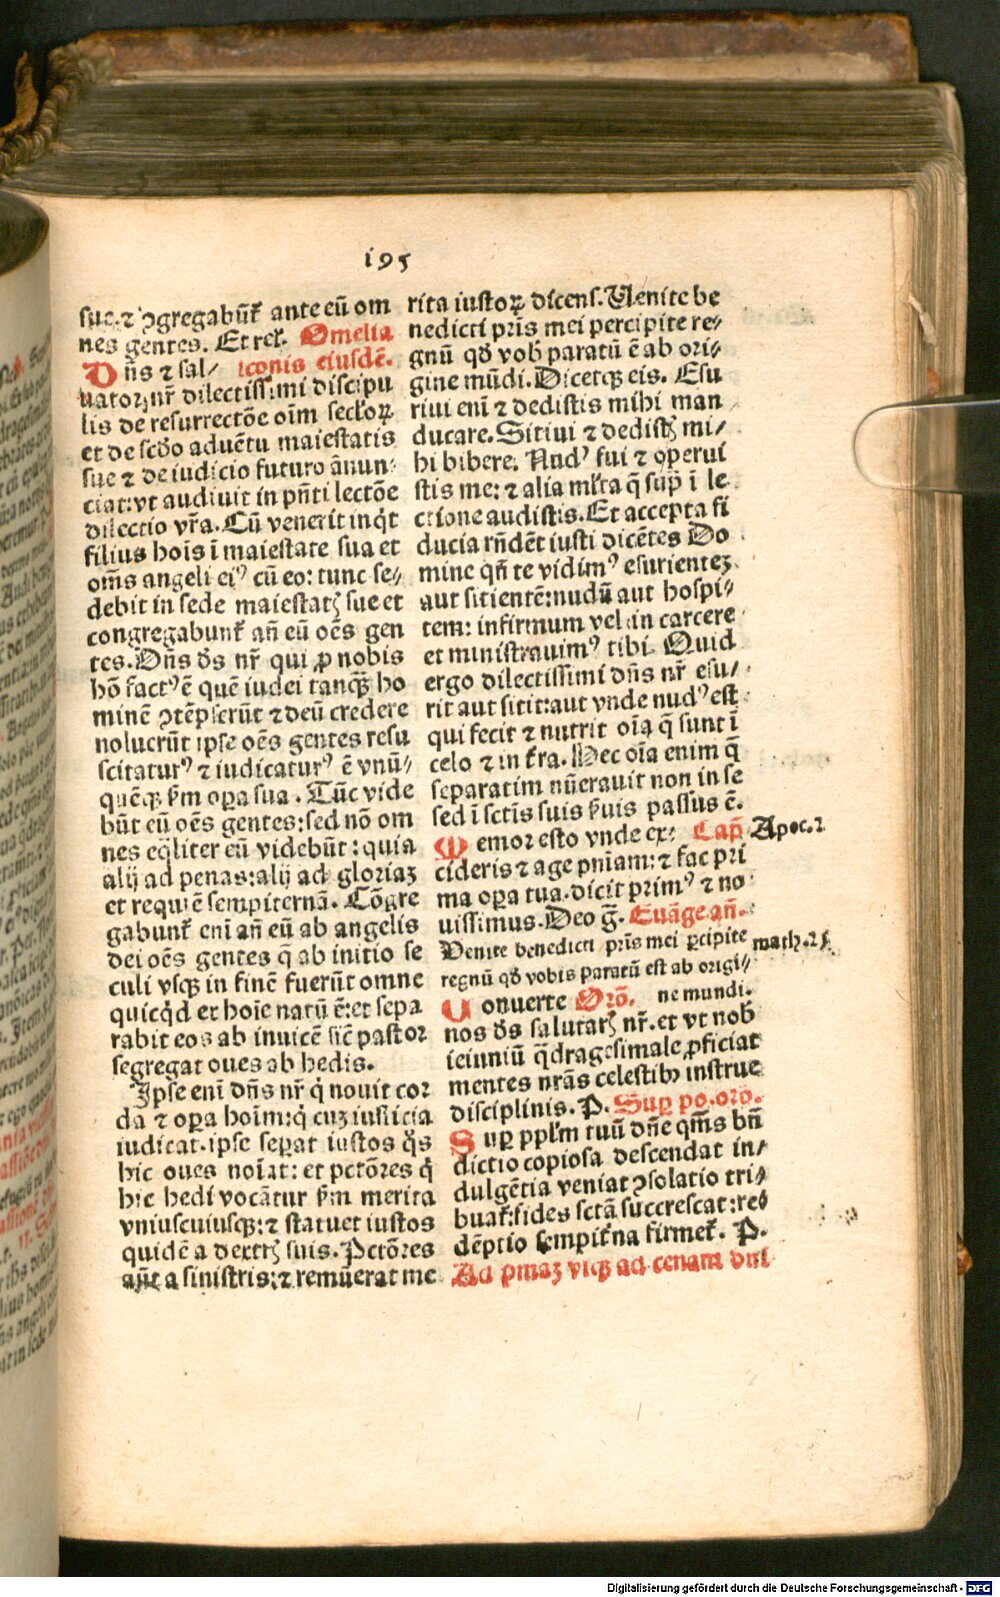 195
sue. ⁊ ꝯgregabũt᷑ ante eũ om
nes gentes. Et rel̃. Omelia
Dñs ⁊ sal⸗ iconis eiusdẽ.
uator nr̃ dilectissimi discipu
lis de resurrectõe oĩm secl̃oꝝ
et de scd̃o aduẽtu maiestatis
sue ⁊ de iudicio futuro ãnun⸗
ciat: vt audiuit in pñti lectõe
dilectio vr̃a. Cũ venerit inq̃t
filius hoĩs ĩ maiestate sua et
om̃s angeli eiꝰ cũ eo: tunc se⸗
debit in sede maiestatꝭ sue et
congregabunt᷑ añ eũ oẽs gen
tes. Dñs ds̃ nr̃ qui ꝓ nobis
hõ factꝰ ẽ quẽ iudei tanqꝫ ho
minẽ ꝯtẽpserũt ⁊ deũ credere
noluerũt ipse oẽs gentes resu
scitaturꝰ ⁊ iudicaturꝰ ẽ vnũ⸗
quẽqꝫ ẜm oꝑa sua. Tũc vide
bũt eũ oẽs gentes: sed nõ om
nes eq̃liter eũ videbũt: quia
alij ad penas: alij ad gloriaꝫ
et requiẽ sempiternã. Cõgre
gabunt᷑ enĩ añ eũ ab angelis
dei oẽs gentes q̃ ab initio se
culi vsqꝫ in finẽ fuerũt omne
quicq̃d et hoĩe natũ ẽ: et sepa
rabit eos ab inuicẽ sic̃ pastor
segregat oues ab hedis.
Ipse enĩ dñs nr̃ q̃ nouit cor
da ⁊ oꝑa hoĩm: q̃ cuꝫ iusticia
iudicat. ipse seꝑat iustos q̃s
hic oues noĩat: et pctõres q̃
hic hedi vocãtur ẜm merita
vniuscuiusqꝫ: ⁊ statuet iustos
quidẽ a dextrꝭ suis. Pctõres
aũt a sinistris: ⁊ remũerat me
rita iustoꝝ dicens. Uenite be
nedicti pr̃is mei percipite re⸗
gnũ qd̃ vob̃ paratũ ẽ ab ori⸗
gine mũdi. Dicetqꝫ eis. Esu
riui enĩ ⁊ dedistis mihi man
ducare. Sitiui ⁊ dedistꝭ mi⸗
hi bibere. Nudꝰ fui ⁊ operui
stis me: ⁊ alia ml̃ta q̃ sup̃ ĩ le
ctione audistis. Et accepta fi
ducia rñdẽt iusti dicẽtes Do
mine qñ te vidimꝰ esurienteꝫ
aut sitientẽ: nudũ aut hospi⸗
tem: infirmum vel in carcere
et ministrauimꝰ tibi. Quid
ergo dilectissimi dñs nr̃ esu⸗
rit aut sitit: aut vnde nudꝰ est
qui fecit ⁊ nutrit oĩa q̃ sunt ĩ
celo ⁊ in t᷑ra. Hec oĩa enim q̃
separatim nũerauit non in se
sed ĩ sctĩs suis ẜuis passus ẽ.
Memor esto vnde ex⸗ Cap̃ Apoc. 2
cideris ⁊ age pniãm: ⁊ fac pri
ma oꝑa tua. dicit primꝰ ⁊ no
uissimus. Deo g̃. Euãge añ.
Uenite benedicti pr̃is mei ꝑcipite math. 25.
regnũ qd̃ vobis paratũ est ab origi⸗
Conuerte Orõ. ne mundi.
nos ds̃ salutarꝭ nr̃. et vt nob̃
ieiuniũ q̃dragesimale ꝓficiat
mentes nrãs celestibꝰ instrue
disciplinis. P. Suꝑ po. orõ.
Suꝑ ppl̃m tuũ dñe qm̃s bñ
dictio copiosa descendat in⸗
dulgẽtia veniat ꝯsolatio tri⸗
buat᷑: fides sctã succrescat: red
dẽptio sempit᷑na firmet᷑. P.
Ad pmaꝫ vsqꝫ ad cenam dñi
Digitalisierung gefördert durch die Deutsche Forschungsgemeinschaft - DFG